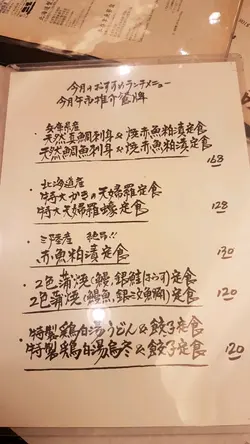 今月のおすすめランチメニュー
今月午市推介餐牌
・愛媛県産
天然真鯛刺身&焼赤魚粕漬定食
天然鯛魚刺身&焼赤魚粕漬定食
168
・北海道産
特大かきの天婦羅定食
特大天婦羅蠔定食
128
・三陸産 絶品!!
赤魚粕漬定食
130
・2色蒲焼(鰻,銀鮭はらす)定食
2色蒲焼(鰻魚,銀三文魚腩)定食
120
・特製鶏白湯うどん&餃子定食
特製鶏白湯烏冬&餃子定食
120